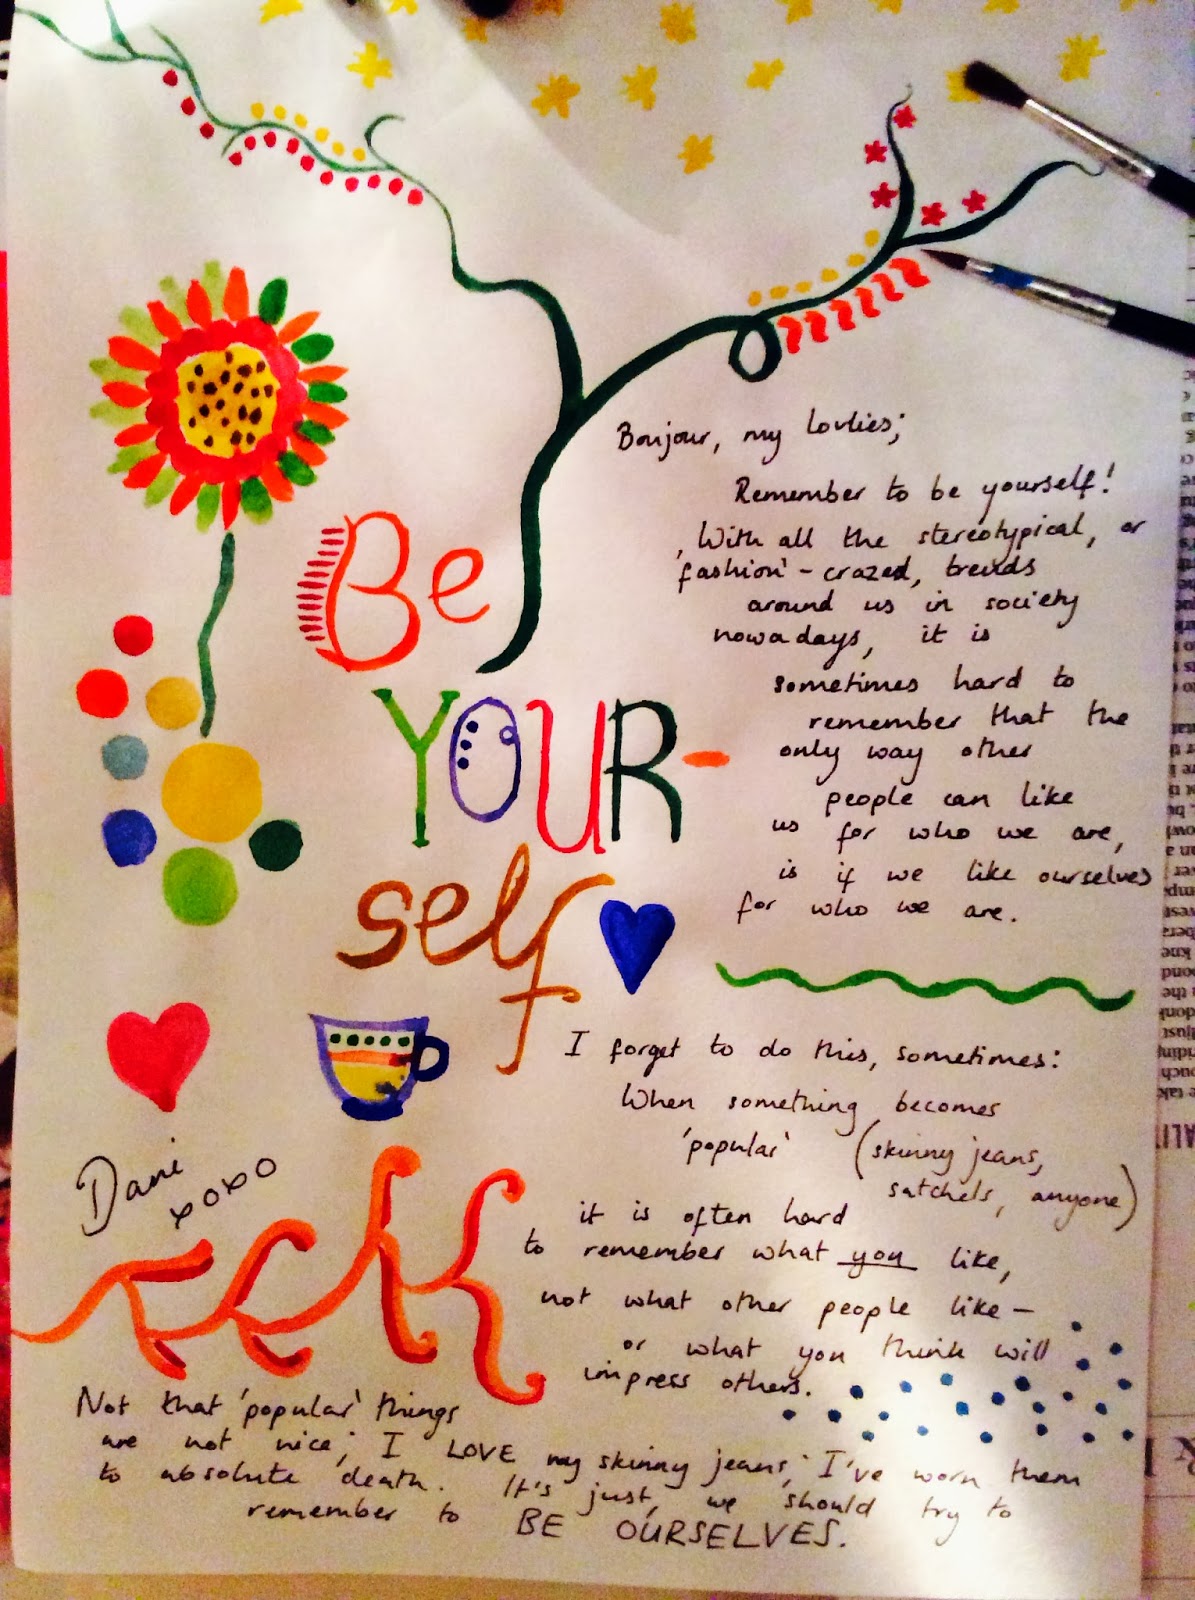 Be
YOUR-
self
Bonjour, my lovlies;
Remember to be yourself!
With all the stereotypical, or
'fashion'-crazed, trends
around us in society
nowadays, it is
sometimes hard to
remember that the
only way other
people can like
us for who we are,
is if we like ourselves
for who we are.
I forget to do this, sometimes:
When something becomes
'popular' (skinny jeans,
satchels, anyone)
it is often hard
to remember what you like,
not what other people like –
or what you think will
impress others.
Dani
xoxo
Not that 'popular' things
are not nice; I LOVE my skinny jeans; I've worn them
to absolute death. It's just, we should try to
remember to BE OURSELVES.